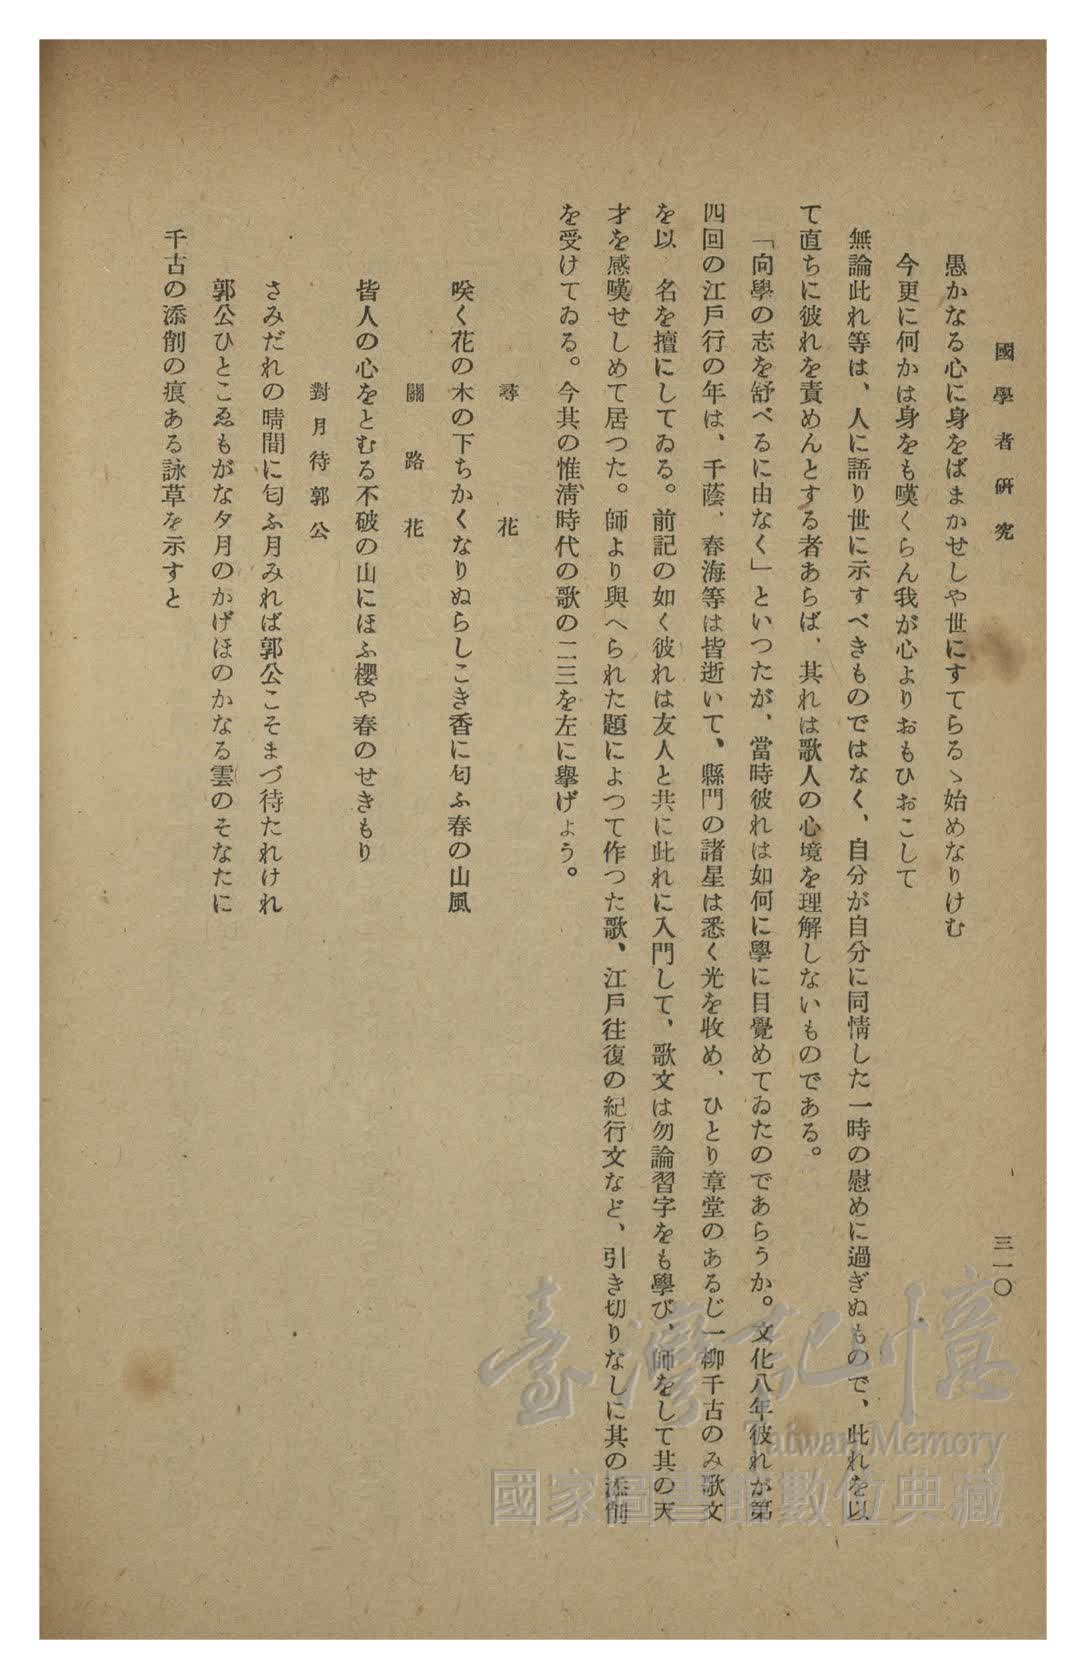 國學者硏究
三一〇
愚かなる心に身をばまかせしや世にすてらるゝ始めなりけむ
今更に何かは身をも嘆くらん我が心よりおもひおこして
無論此れ等は、人に語り世に示すべきものではなく、自分が自分に同情した一時の慰めに過ぎぬもので、此れを以
て直ちに彼れを責めんとする者あらば、其れは歌人の心境を理解しないものである。
「向學の志を舒べるに由なく」といつたが、當時彼れは如何に學に目覺めてゐたのであらうか。文化八年彼れが第
四回の江戶行の年は、千蔭、春海等は皆逝いて、縣門の諸星は悉く光を收め、ひとり章堂のあるじ一柳千古のみ歌文
を以　名を擅にしてゐる。前記の如く彼れは友人と共に此れに入門して、歌文は勿論習字をも學び、師をして其の天
才を感嘆せしめて居つた。師より與へられた題によつて作つた歌、江戶往復の紀行文など、引き切りなしに其の添削
を受けてゐる。今其の惟淸時代の歌の二三を左に擧げよう。
尋花
咲く花の木の下ちかくなりぬらしこき香に匂ふ春の山風
關路花
皆人の心をとむる不破の山にほふ櫻や春のせきもり
對月待郭公
さみだれの晴間に匂ふ月みれば郭公こそまづ待たれけれ
郭公ひとこゑもがな夕月のかげほのかなる雲のそなたに
千古の添削の痕ある詠草を示すと
臺灣記憶
Taiwan Memory
國家圖書館數位典藏